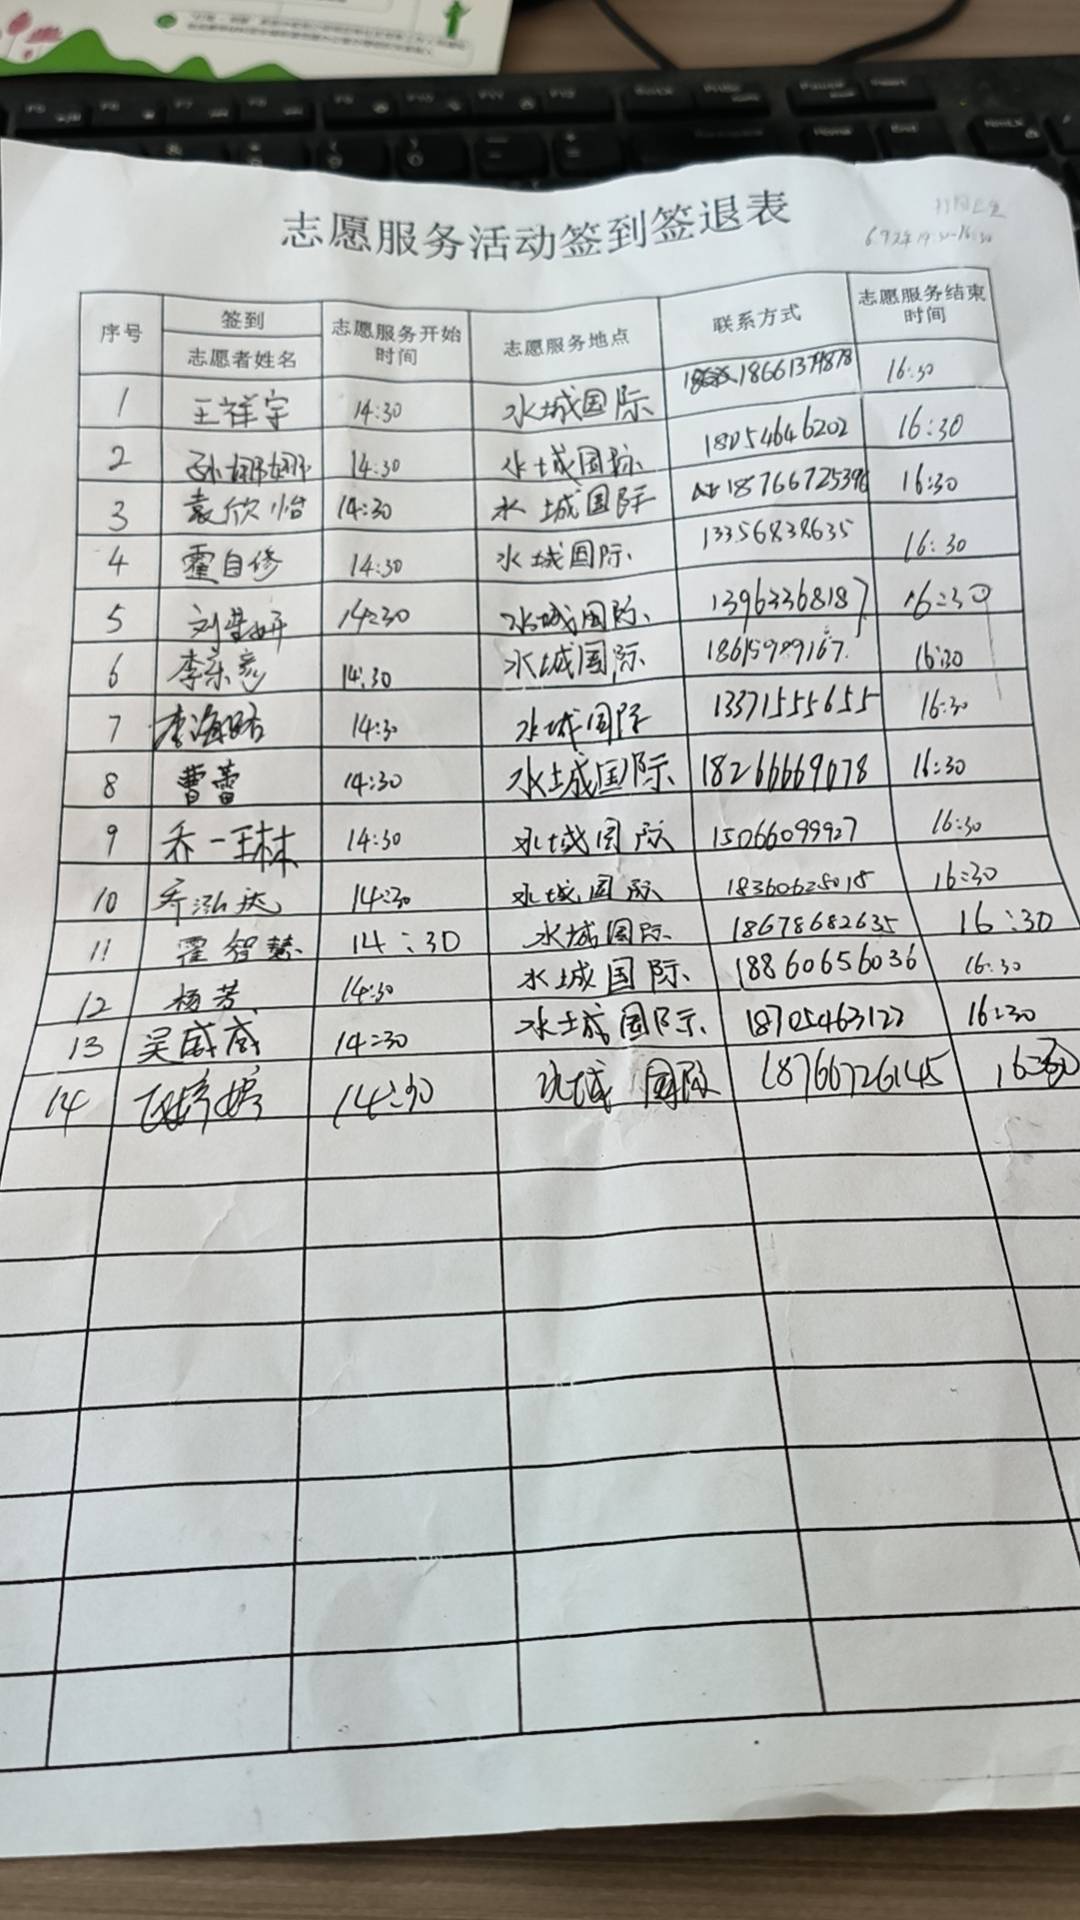 志愿服务活动签到签退表
序号 签到 志愿者姓名 志愿服务开始时间 志愿服务地点 联系方式 志愿服务结束时间
1 王祥宇 14:30 水城国际 18661379878 16:30
2 孙娜娜 14:30 水城国际 18054646202 16:30
3 袁欣怡 14:30 水城国际 18766725396 16:30
4 霍自修 14:30 水城国际 13356838635 16:30
5 刘莹妍 14:30 水城国际 13963368187 16:30
6 14:30 水城国际 18615989167 16:30
7 李海路 14:30 水城国际 13371555655 16:30
8 曹蕾 14:30 水城国际 18266669078 16:30
9 乔一琳 14:30 水城国际 15066099927 16:30
10 乔泓达 14:30 水城国际 18360625018 16:30
11 霍智慧 14:30 水城国际 18678682635 16:30
12 杨芳 14:30 水城国际 18860656036 16:30
13 吴威威 14:30 水城国际 18705463122 16:30
14 14:30 水城国际 18766726145 16:30